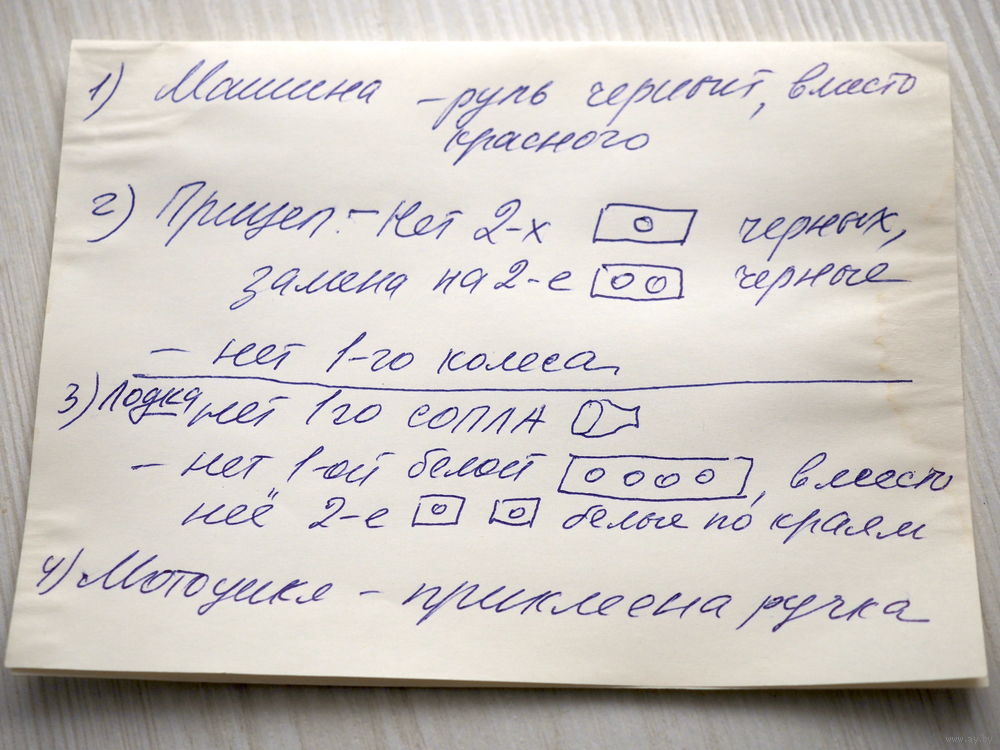 1) Машина - руль черный, вместо
красного
2) Прицеп: - Нет 2-х черных,
замена на 2-е черные
- нет 1-го колеса
3) Лодка нет 1го сопла
- нет 1-ой белой, вместо
неё 2-е белые по краям
4) Мотоцикл - приклеена ручка
www.ay.by